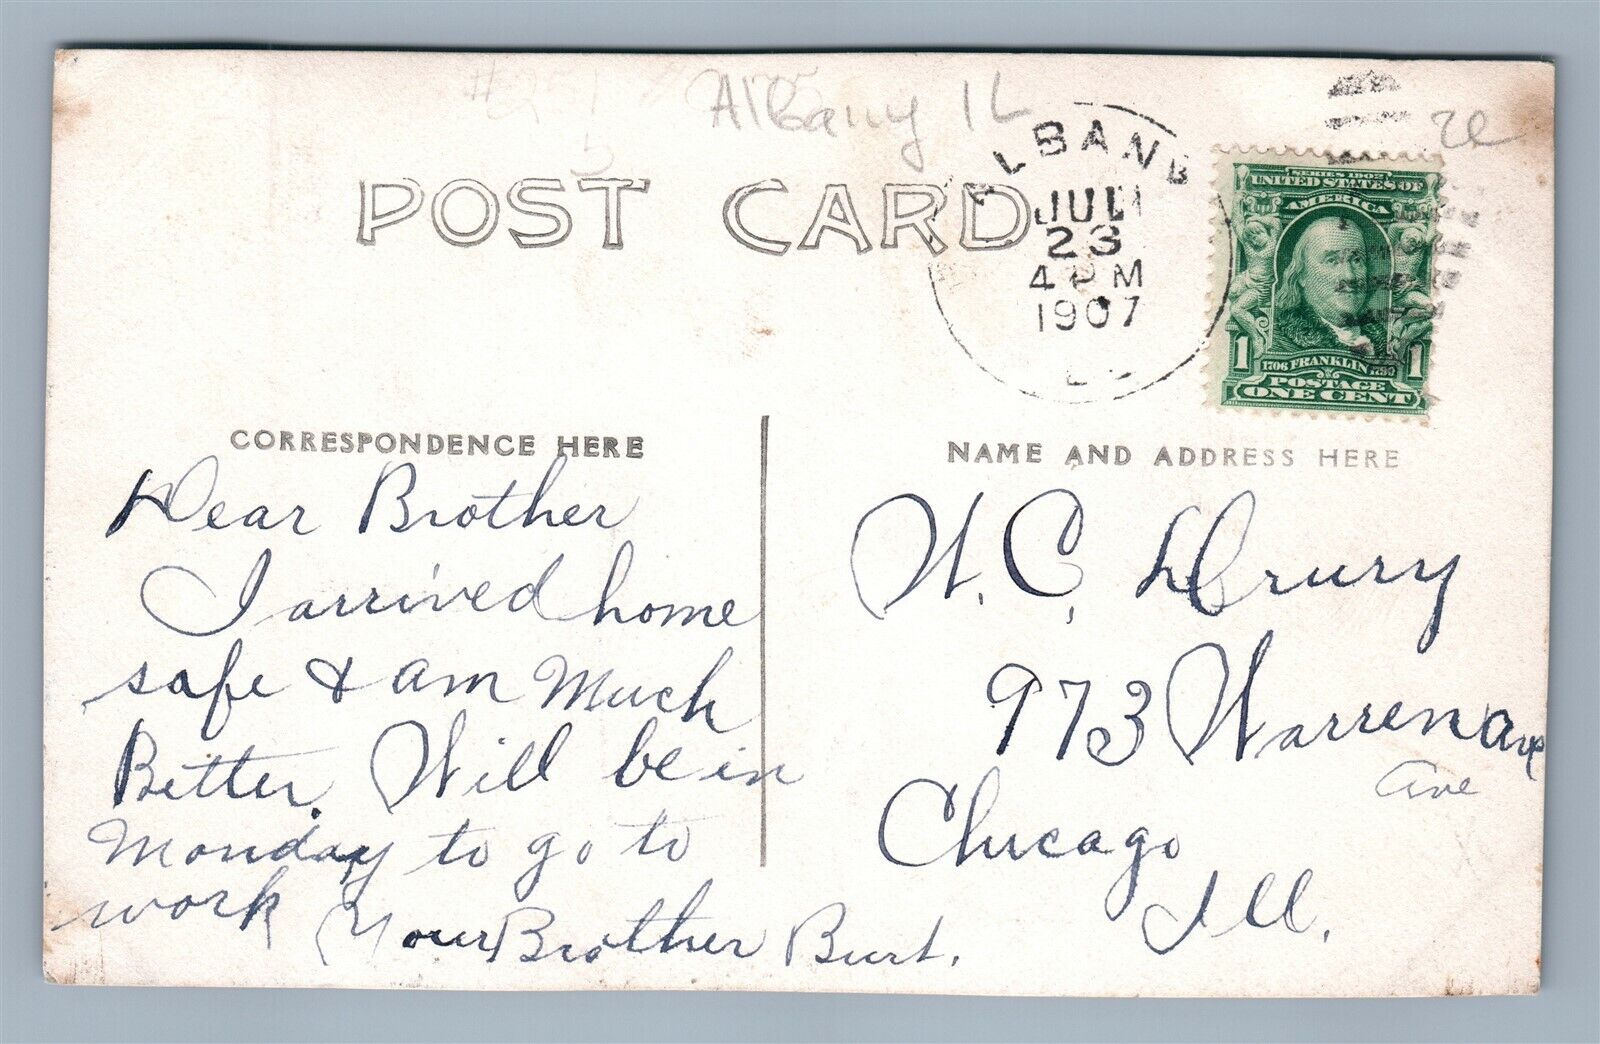 Albany IL
POST CARD
ALBANY
JUL
23
4 PM
1907
SERIES 1902
UNITED STATES OF
AMERICA
1706 FRANKLIN 1790
1 1
POSTAGE
ONE CENT
CORRESPONDENCE HERE
NAME AND ADDRESS HERE
Dear Brother
I arrived home
safe & am Much
Better. Will be in
Monday to go to
work
Your Brother Burt.
W. C. Drury
973 Warren Ave
Ave
Chicago
Ill.